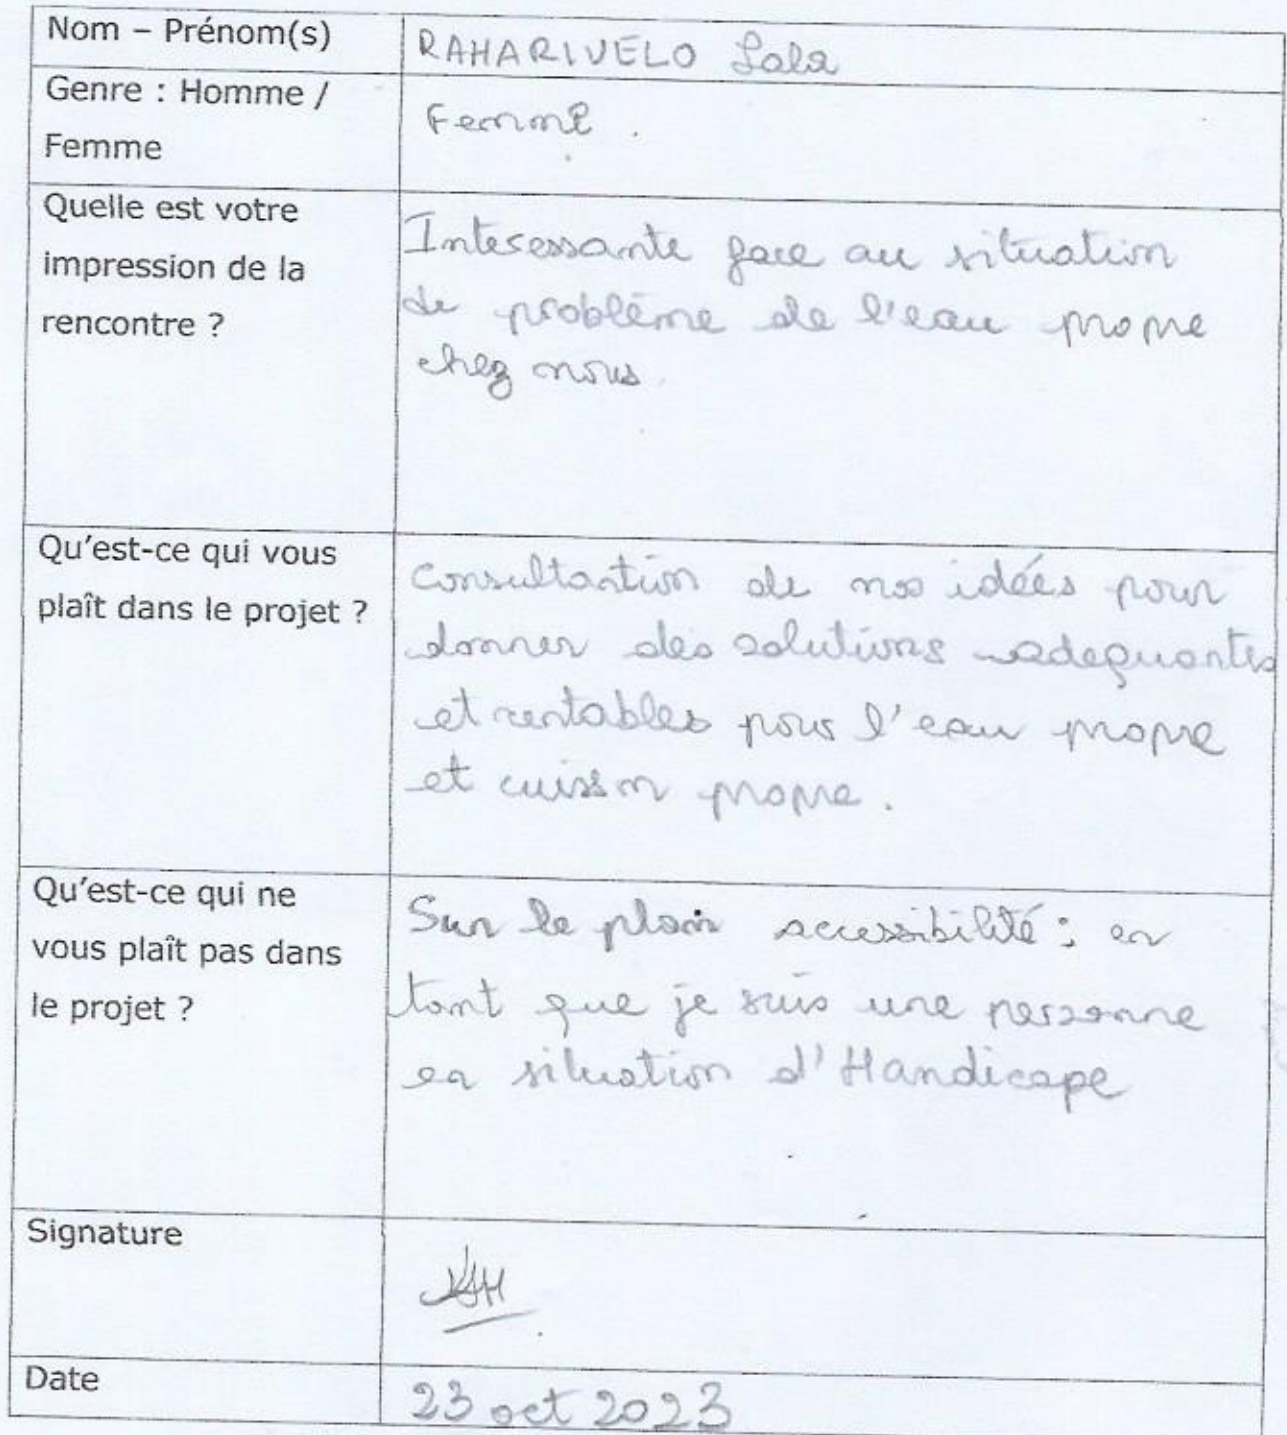 Nom – Prénom(s)
RAHARIVELO Lala
Genre : Homme /
Femme
Femme.
Quelle est votre
impression de la
rencontre ?
Interessante face au situation
de problème de l'eau propre
chez nous.
Qu'est-ce qui vous
plaît dans le projet ?
consultantion de nos idées pour
donner des solutions adequantes
et rentables pour l'eau propre
et cuisson propre.
Qu'est-ce qui ne
vous plaît pas dans
le projet ?
Sur le plain accessibilité : en
tant que je suis une personne
en situation d'Handicape
Signature
Date
23 oct 2023